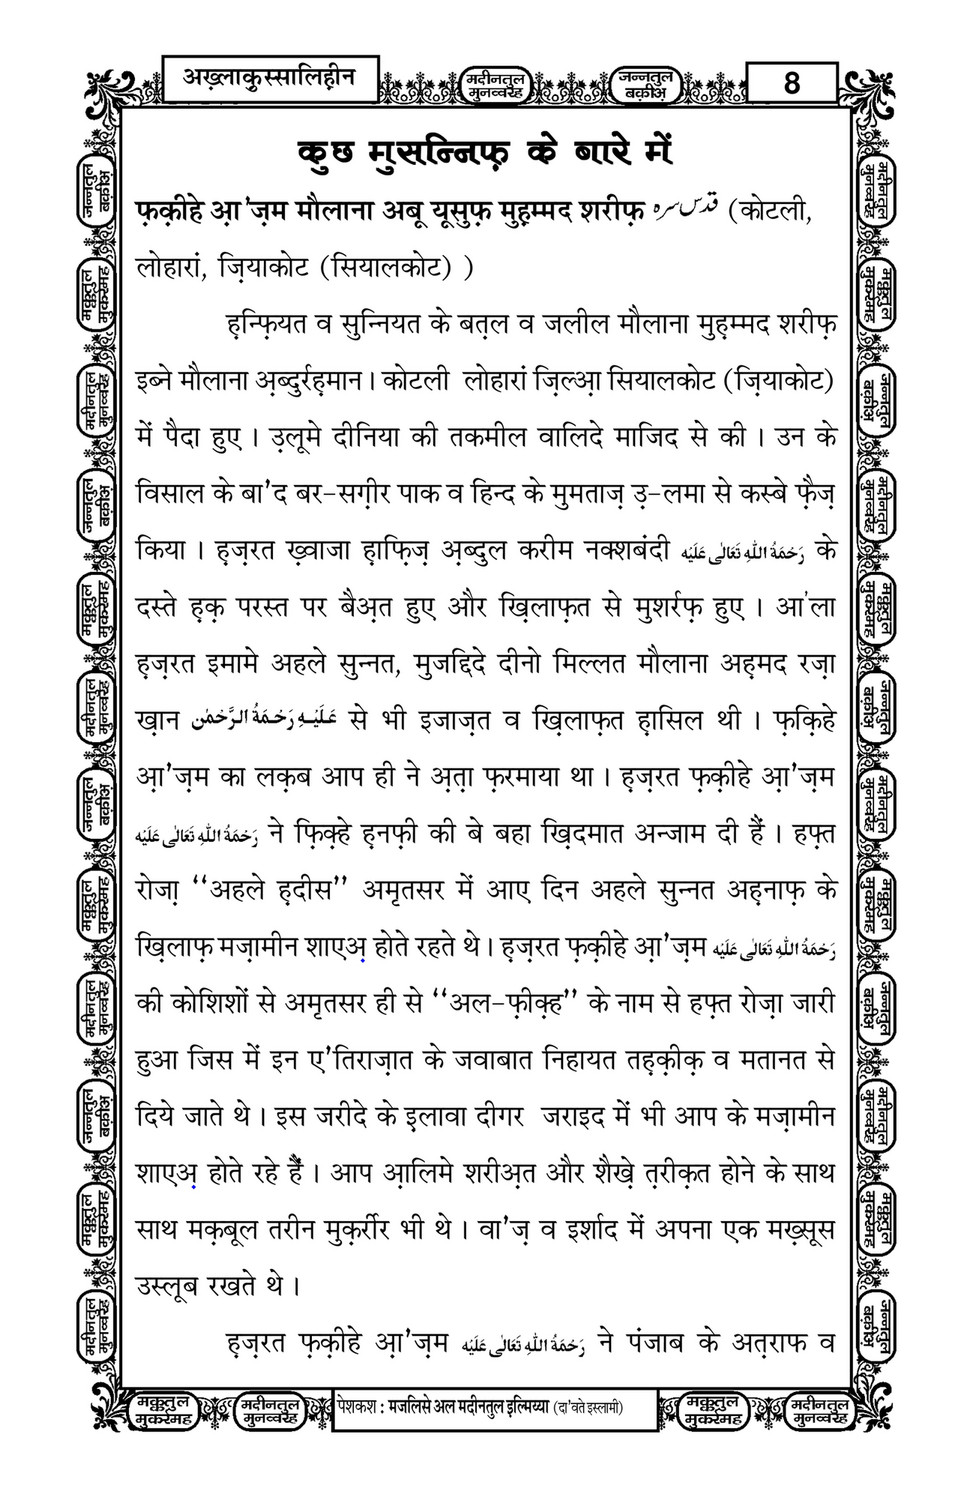 अख़्लाक़ुस्सालिह़ीन
मदीनतुल मुनव्वरह
जन्नतुल बक़ीअ़
8
कुछ मुसन्निफ़ के बारे में
फ़क़ीहे आ़'ज़म मौलाना अबू यूसुफ़ मुह़म्मद शरीफ़ قدس سرہ (कोटली,
लोहारां, ज़ियाकोट (सियालकोट) )
ह़न्फ़ियत व सुन्नियत के बत़ल व जलील मौलाना मुह़म्मद शरीफ़
इब्ने मौलाना अ़ब्दुर्रह़मान। कोटली लोहारां ज़िल्आ़ सियालकोट (ज़ियाकोट)
में पैदा हुए । उ़लूमे दीनिया की तकमील वालिदे माजिद से की । उन के
विसाल के बा'द बर-सग़ीर पाक व हिन्द के मुमताज़ उ़-लमा से कस्बे फ़ैज़
किया । ह़ज़रत ख़्वाजा ह़ाफ़िज़ अ़ब्दुल करीम नक्शबंदी رَحْمَةُ اللهِ تَعَالٰی عَلَيْه के
दस्ते ह़क़ परस्त पर बैअ़त हुए और ख़िलाफ़त से मुशर्रफ़ हुए । आ'ला
ह़ज़रत इमामे अहले सुन्नत, मुजद्दिदे दीनो मिल्लत मौलाना अह़मद रज़ा
ख़ान عَلَيْهِ رَحْمَةُ الرَّحْمٰن से भी इजाज़त व ख़िलाफ़त ह़ासिल थी । फ़क़िहे
आ़'ज़म का लक़ब आप ही ने अ़त़ा फ़रमाया था । ह़ज़रत फ़क़ीहे आ़'ज़म
رَحْمَةُ اللهِ تَعَالٰی عَلَيْه ने फ़िक़्हे ह़नफ़ी की बे बहा ख़िदमात अन्जाम दी हैं । हफ़्त
रोज़ा ‘‘अहले ह़दीस’’ अमृतसर में आए दिन अहले सुन्नत अह़नाफ़ के
ख़िलाफ़ मज़ामीन शाएअ़ होते रहते थे। ह़ज़रत फ़क़ीहे आ़'ज़म رَحْمَةُ اللهِ تَعَالٰی عَلَيْه
की कोशिशों से अमृतसर ही से ‘‘अल-फ़ीक़्ह’’ के नाम से हफ़्त रोज़ा जारी
हुआ जिस में इन ए'तिराज़ात के जवाबात निहायत तह़क़ीक़ व मतानत से
दिये जाते थे । इस जरीदे के इ़लावा दीगर जराइद में भी आप के मज़ामीन
शाएअ़ होते रहे हैं । आप आ़लिमे शरीअ़त और शैख़े त़रीक़त होने के साथ
साथ मक़बूल तरीन मुक़र्रीर भी थे । वा'ज़ व इर्शाद में अपना एक मख़्सूस
उस्लूब रखते थे ।
ह़ज़रत फ़क़ीहे आ़'ज़म رَحْمَةُ اللهِ تَعَالٰی عَلَيْه ने पंजाब के अत़राफ़ व
मक्कतुल मुकर्रमह
मदीनतुल मुनव्वरह
पेशकश : मजलिसे अल मदीनतुल इल्मिय्या (दा'वते इस्लामी)
मक्कतुल मुकर्रमह
मदीनतुल मुनव्वरह